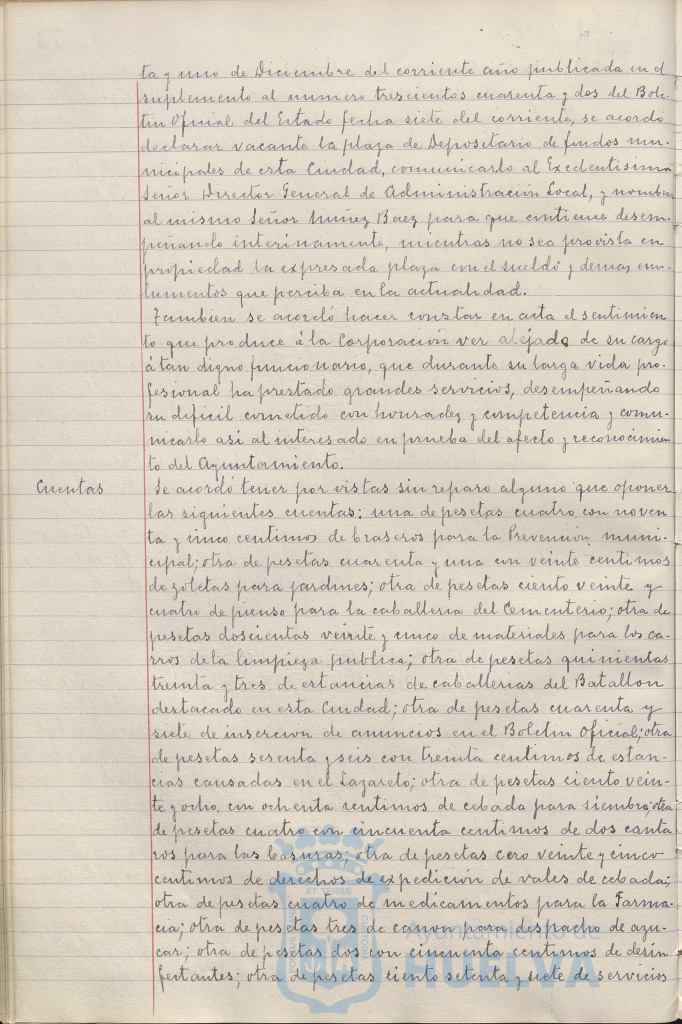 ta y uno de Diciembre del corriente año publicada en el
suplemento al numero trescientos cuarenta y dos del Bole-
tin Oficial del Estado fecha siete del corriente, se acordó
declarar vacante la plaza de Depositario de fondos mu-
nicipales de esta Ciudad, comunicarlo al Excelentisimo
Señor Director General de Administración Local, y nombrar
al mismo Señor Nuñez Baez para que continue desem-
peñando interinamente, mientras no sea provista en
propiedad la expresada plaza con el sueldo y demas emo-
lumentos que percibia en la actualidad.
Tambien se acordó hacer constar en acta el sentimien-
to que produce á la Corporación ver alejado de su cargo
á tan digno funcionario, que durante su larga vida pro-
fesional ha prestado grandes servicios, desempeñando
su dificil cometido con honradez y competencia y comu-
nicarlo asi al interesado en prueba del afecto y reconocimien-
to del Ayuntamiento.
Cuentas
Se acordó tener por vistas sin reparo alguno que oponer
las siguientes cuentas: una de pesetas cuatro con noven-
ta y cinco centimos de braseros para la Prevención muni-
cipal; otra de pesetas cuarenta y una con veinte centimos
de zoletas para jardines; otra de pesetas ciento veinte y
cuatro de pienso para la caballeria del Cementerio; otra de
pesetas doscientas veinte y cinco de materiales para los ca-
rros de la limpieza publica; otra de pesetas quinientas
treinta y tres de estancias de caballerias del Batallon
destacado en esta Ciudad; otra de pesetas cuarenta y
siete de insercion de anuncios en el Boletin Oficial; otra
de pesetas sesenta y seis con treinta centimos de estan-
cias causadas en el Lazareto; otra de pesetas ciento vein-
te y ocho, con ochenta centimos de cebada para siembra; otra
de pesetas cuatro con cincuenta centimos de dos canta-
ros para las basuras; otra de pesetas cero veinte y cinco
centimos de derechos de expedición de vales de cebada;
otra de pesetas cuatro de medicamentos para la Farma-
cia; otra de pesetas tres de canon para despacho de azu-
car; otra de pesetas dos con cincuenta centimos de desin-
fectantes; otra de pesetas ciento setenta y siete de servicios
Ayuntamiento de
HUELVA